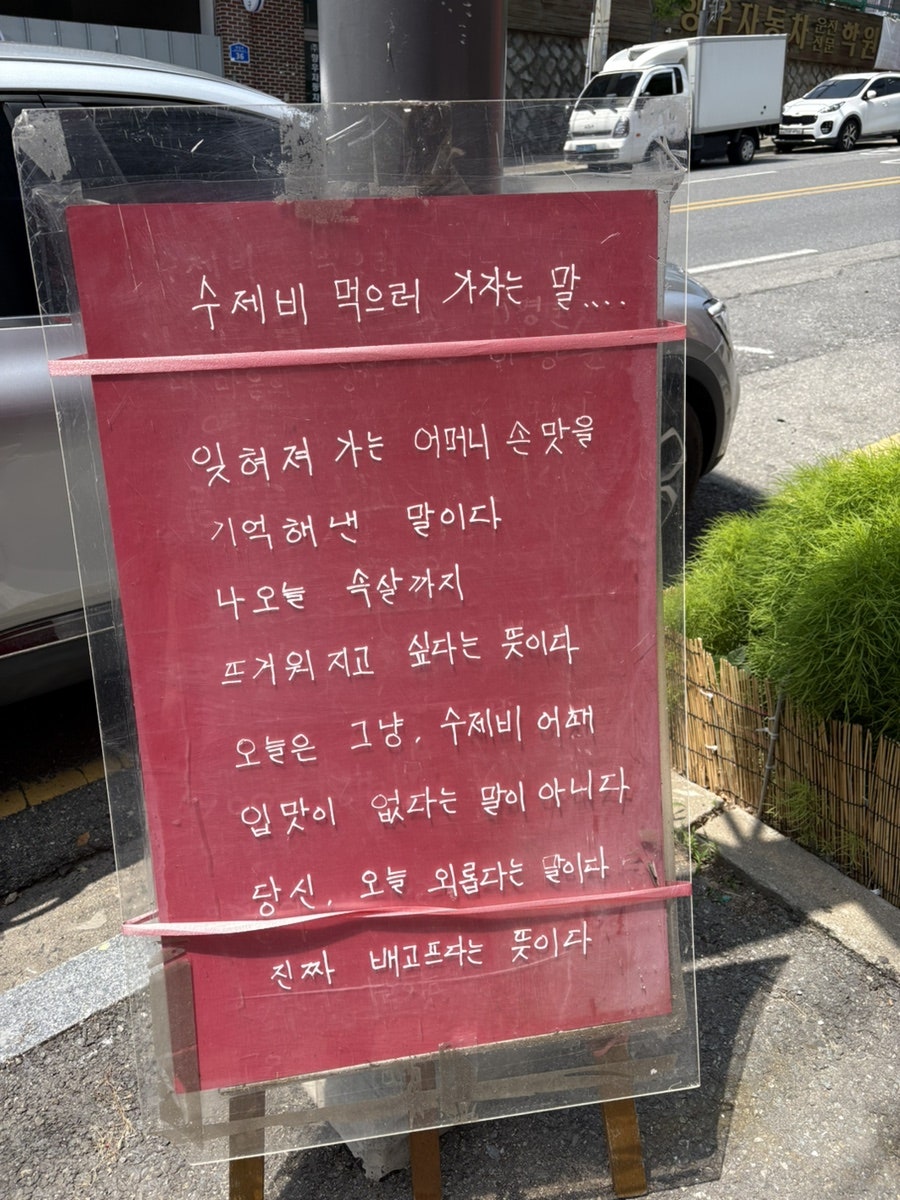 양우자동차 운전전문 학원
36
수제비 먹으러 가자는 말....
잊혀져 가는 어머니 손맛을
기억해 낸 말이다
나 오늘 속살까지
뜨거워지고 싶다는 뜻이다
오늘은 그냥, 수제비 어때
입맛이 없다는 말이 아니다
당신, 오늘 외롭다는 말이다
진짜 배고프다는 뜻이다